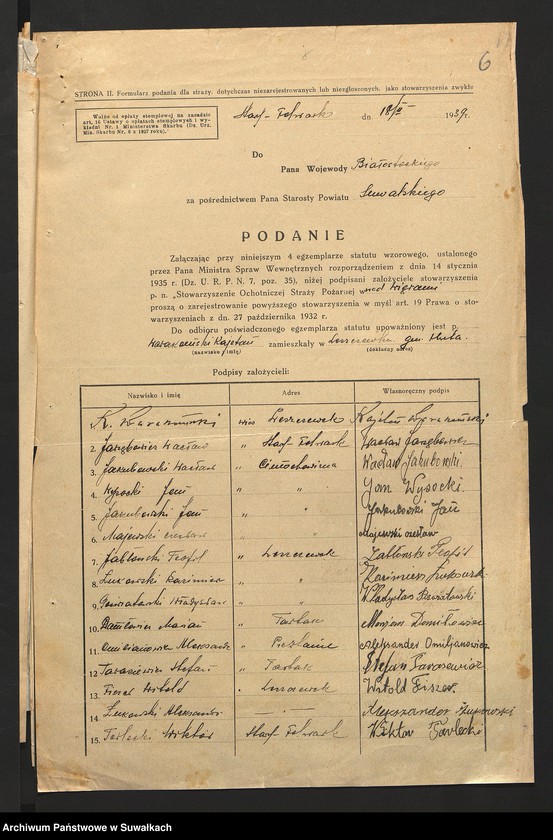 6
STRONA II. Formularz podania dla straży, dotychczas niezarejestrowanych lub niezgłoszonych, jako stowarzyszenia zwykłe
Wolne od opłaty stemplowej na zasadzie
art. 16 Ustawy o opłatach stemplowych i wy-
kładni Nr. 1 Ministerstwa Skarbu (Dz. Urz.
Min. Skarbu Nr. 6 z 1927 roku).
Folwark dn. 1939 r.
Do
Pana Wojewody Białostockiego
za pośrednictwem Pana Starosty Powiatu Suwalskiego
PODANIE
Załączając przy niniejszym 4 egzemplarze statutu wzorowego, ustalonego
przez Pana Ministra Spraw Wewnętrznych rozporządzeniem z dnia 14 stycznia
1935 r. (Dz. U. R. P. N. 7, poz. 35), niżej podpisani założyciele stowarzyszenia
p. n. „Stowarzyszenie Ochotniczej Straży Pożarnej w nad Wigrami
proszą o zarejestrowanie powyższego stowarzyszenia w myśl art. 19 Prawa o sto-
warzyszeniach z dn. 27 października 1932 r.
Do odbioru poświadczonego egzemplarza statutu upoważniony jest p.
Kajetan zamieszkały w Leszczewku gm. Huta.
(nazwisko i imię) (dokładny adres)
Podpisy założycieli:
Nazwisko i imię Adres Własnoręczny podpis
K. wieś Leszczewek Kajetan
2. Wacław „ Folwark Wacław
3. Jakubowski Wacław „ Cimochowizna Wacław Jakubowski.
4. Wysocki Jan „ „ Jan Wysocki.
5. Jakubowski Jan „ „ Jakubowski Jan
6. Majewski Czesław „ „ Majewski Czesław
7. Jabłoński Teofil „ Leszczewek Jabłonski Teofil
8. Żukowski Kazimierz „ „ Kazimierz Żukowski
9. Władysław „ „ Władysław
10. Marian „ Tartak Marjan
11. Omiljanowicz Aleksander „ Aleksander Omiljanowicz
12 Tarasiewicz Stefan „ Tartak Stefan Tarasewicz
13 Witold „ Leszczewek Witold Fiszer.
14 Żukowski Aleksander — „ — Żukowski
15. Wiktor Folwark Wiktor
Archiwum Państwowe w Suwałkach